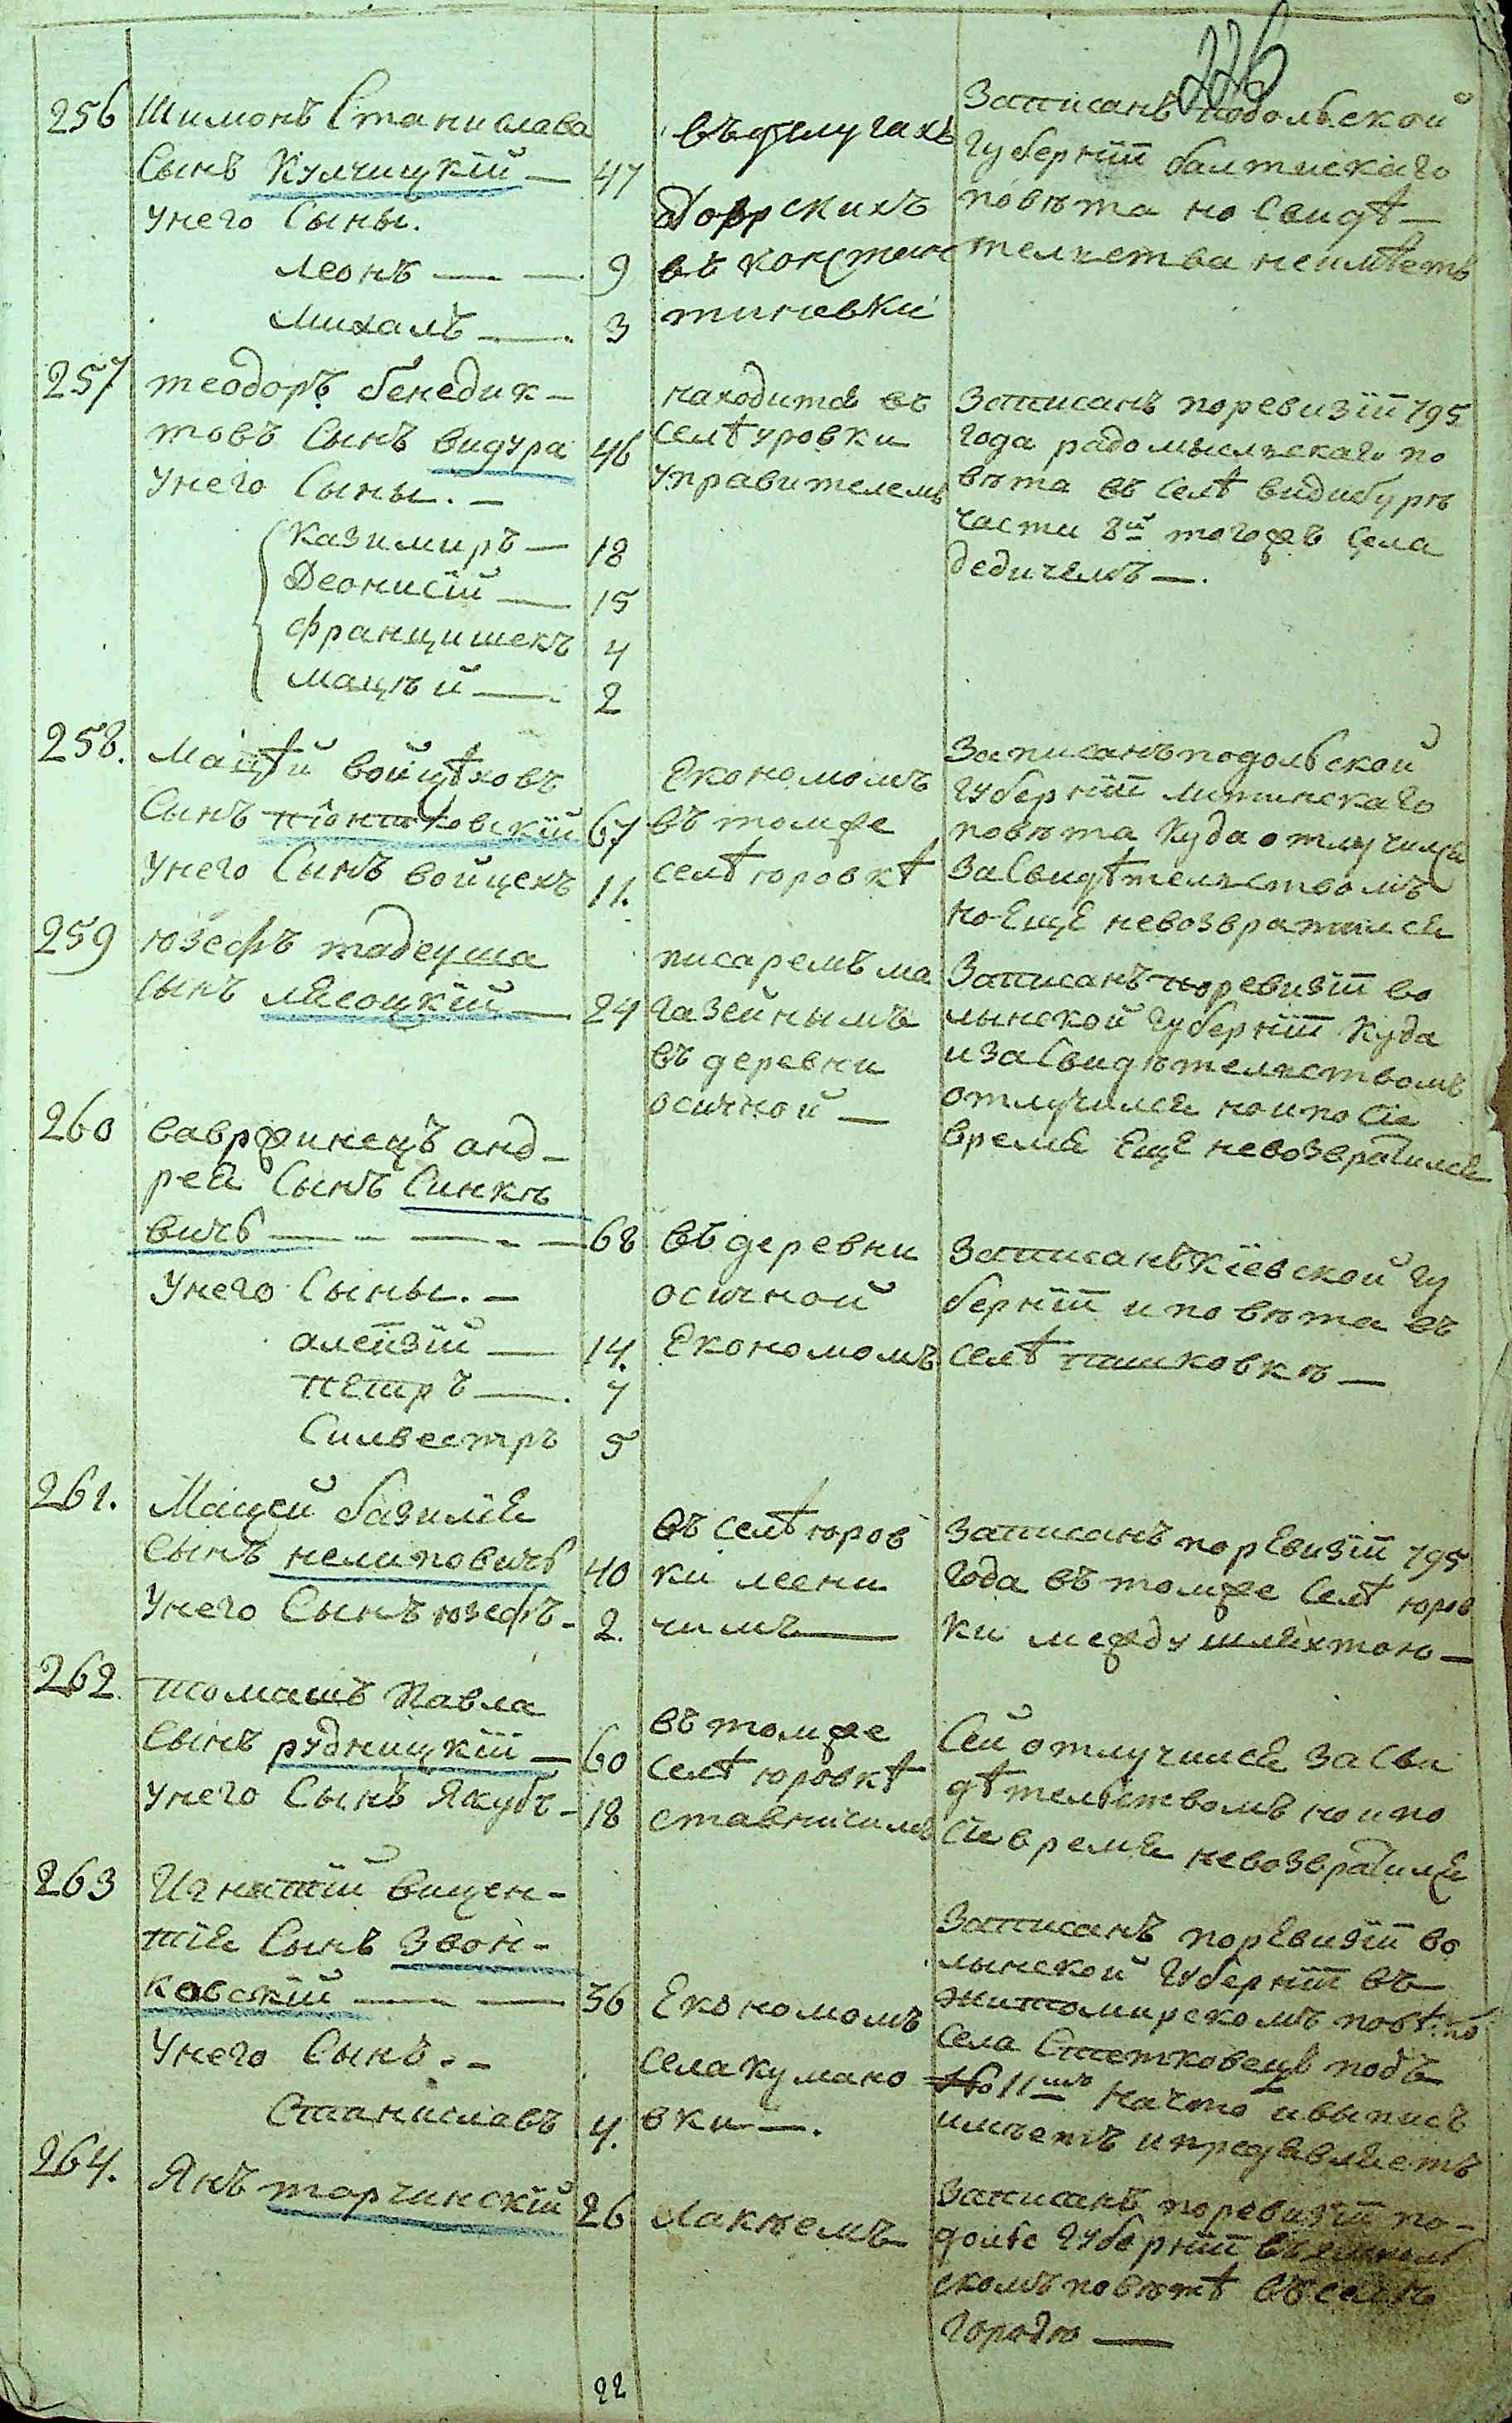 226
256 Шимонъ Станислава
Сынъ Кулчицкій — 47
унего Сыны.
Леонъ — — 9
Михалъ — 3
въ услугахъ
дворскихъ
въ констан
тиневки
Записанъ подольской
губерніи балтскаго
повѣта но Свидѣ—
телства неимѣетъ
257 теодоръ бенедик—
товъ Сынъ видура 46
унего Сыны. —
Казимиръ — 18
Деонисій — 15
францишекъ 4
мацѣй — 2
находится въ
селѣ уровки
управителемъ
Записанъ поревизіи 795
года радомысльскаго по
вѣта въ селѣ видибурѣ
части 8й тогожъ села
дедичемъ —.
258. Мацѣй войцѣховъ
Сынъ піонтковскій 67
унего Сынъ войцехъ 11.
Економомъ
въ томже
селѣ юровкѣ
Записанъ подольской
губерніи литинскаго
повѣта куда отлучился
за Свидѣтелством
но Еще невозвратился
259 юзефъ тадеуша
сынъ лясоцкій — 24
писаремъ ма
газейнымъ
въ деревни
осичной —
Записанъ поревизіи во
лынской губерніи куда
и за Свидѣтелством
отлучился но и по сіе
время Еще невозвратился
260 вавржинецъ анд—
рея Сынъ Синкѣ
вичъ — — — 68
унего Сыны. —
алейзій — 14.
петръ —. 7
Силвестръ 5
въ деревни
осичной
Економомъ
Записанъ кіевской гу
берніи и повѣта въ
селѣ пашковкѣ —
261. Мацей базилія
Сынъ нелиповичъ 40
унего Сынъ юзефъ — 2.
въ селѣ юров
ки лесни
чимъ —
Записанъ поревизіи 795
года въ томже селѣ юров
ки между шляхтою —
262. томашъ павла
Сынъ рудницкій — 60
унего Сынъ якубъ — 18
въ томже
селѣ юровкѣ
ставничимъ
Сей отлучился за Сви
дѣтельством но и по
сіе время невозвратился
263 Игнатій вицен—
тія Сынъ Звон—
ковскій — — 36
унего Сынъ. —
Станиславъ 4.
Економомъ
села кумано
вки —.
Записанъ поревизіи во
лынской губерніи въ
житомирскомъ повѣ:
села Стетковецъ подъ
No 11мъ на что и выписъ
имѣетъ и предъявляетъ
264. Янъ торчинскій 26
Лакѣемъ
Записанъ поревизіи по—
дольс губерніи въ
скомъ повѣтѣ въ селѣ
22